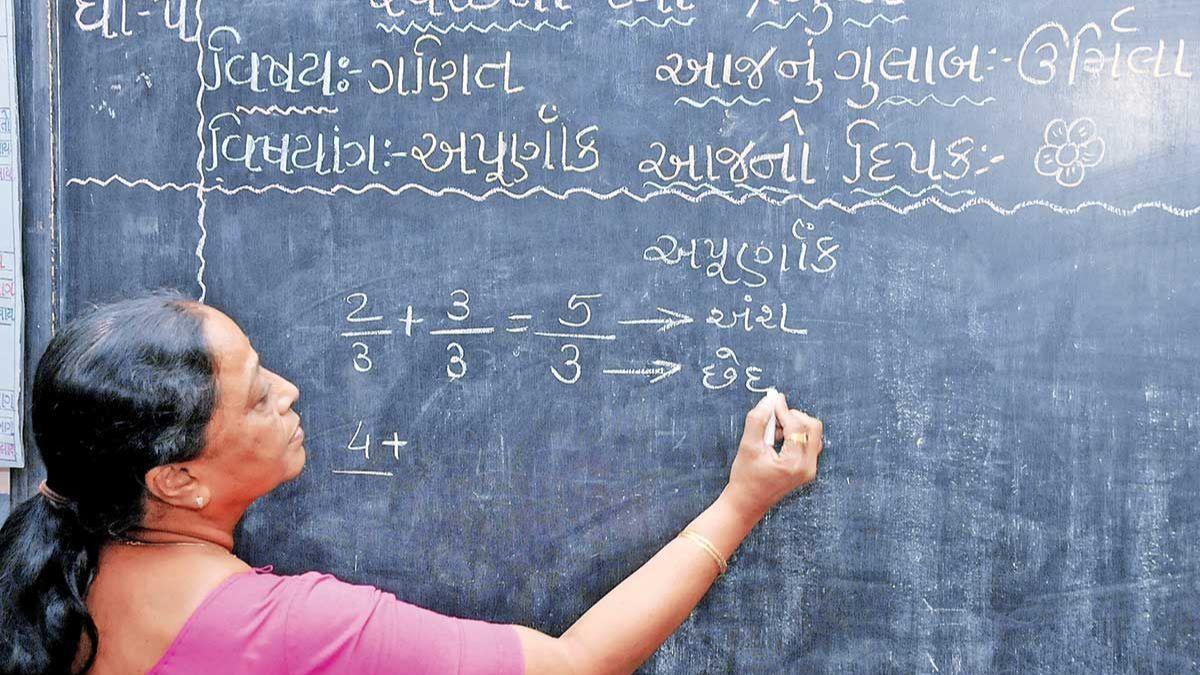 વિષયઃ- ગણિત
આજનું ગુલાબઃ- ઉર્મિલા
વિષયાંગઃ- અપૂર્ણાંક
આજનો દિપકઃ-
અપૂર્ણાંક
2/3 + 3/3 = 5/3
→ અંશ
→ છેદ
4 +